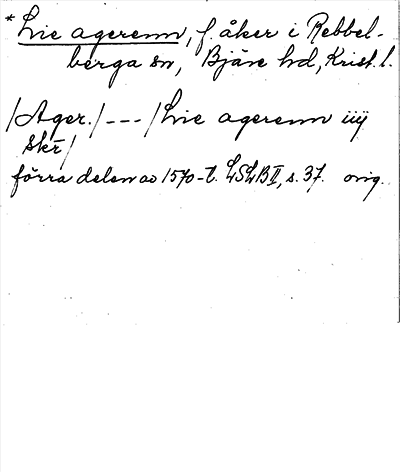 * Lie agerenn, f. åker i Rebbel-
berga sn, Bjäre hd, Krist. l.
/Ager./ --- / Lie agerenn iiij
skr̄ /
förra delen av 1570-t. LSLB II, s. 37. orig.